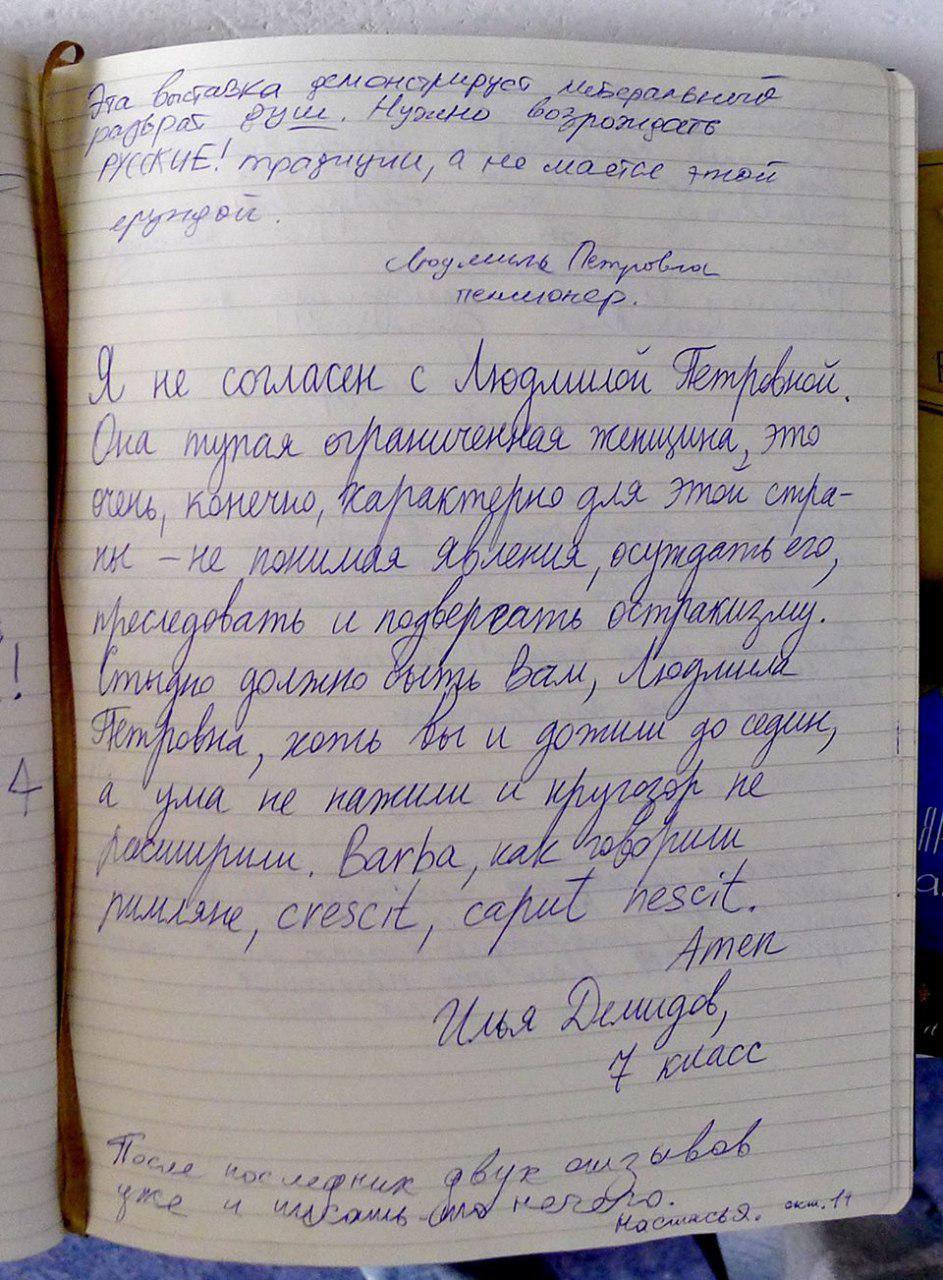 Эта выставка демонстрирует либеральный
разврат душ. Нужно возрождать
РУССКИЕ! традиции, а не маятся этой
ерундой.
Людмила Петровна
пенсионер.
Я не согласен с Людмилой Петровной.
Она тупая ограниченная женщина, это
очень, конечно, характерно для этой стра-
ны – не понимая явления, осуждать его,
преследовать и подвергать остракизму.
Стыдно должно быть Вам, Людмила
Петровна, хоть Вы и дожили до седин,
а ума не нажили и кругозор не
расширили. Barba, как говорили
римляне, crescit, caput nescit.
Атеп
Илья Демидов,
7 класс
После последних двух отзывов
уже и писать-то нечего.
Настасья. окт. 14
!
4